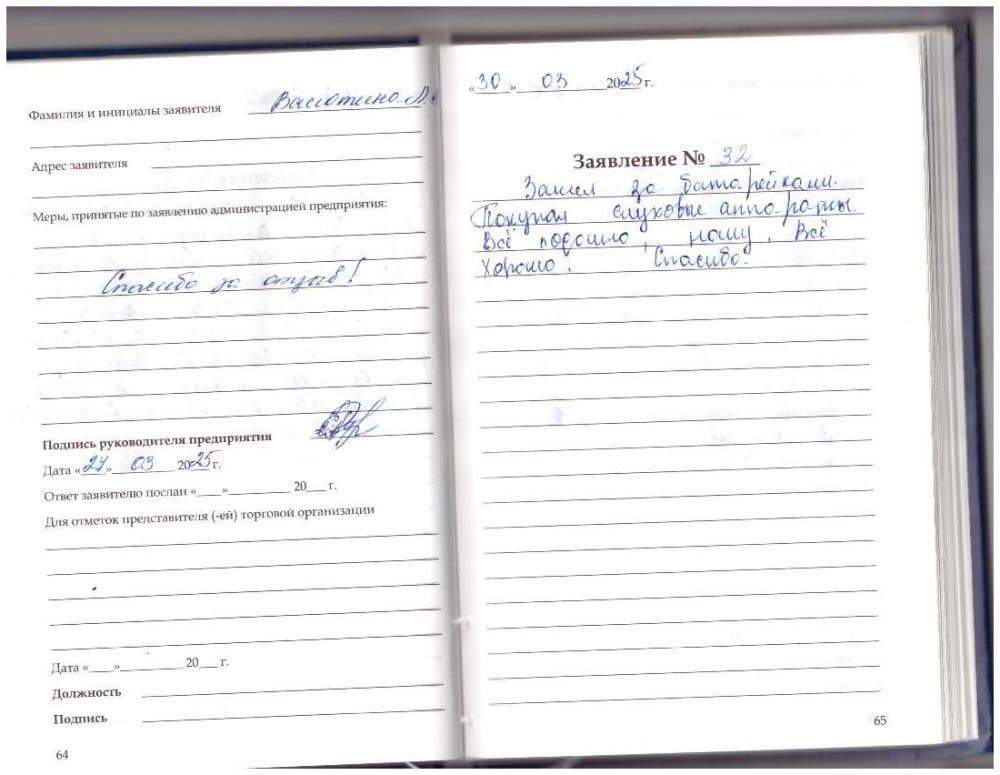 Фамилия и инициалы заявителя Васютина Л.
Адрес заявителя
Меры, принятые по заявлению администрацией предприятия:
Спасибо за отзыв!
Подпись руководителя предприятия
Дата «27» 03 2025 г.
Ответ заявителю послан «___»__________ 20___ г.
Для отметок представителя (-ей) торговой организации
Дата «___»__________ 20___ г.
Должность
Подпись
64
«30» 03 2025 г.
Заявление № 32
Зашел за батарейками.
Покупал слуховые аппараты.
Всё подошло, . Всё
Хорошо. Спасибо.
65